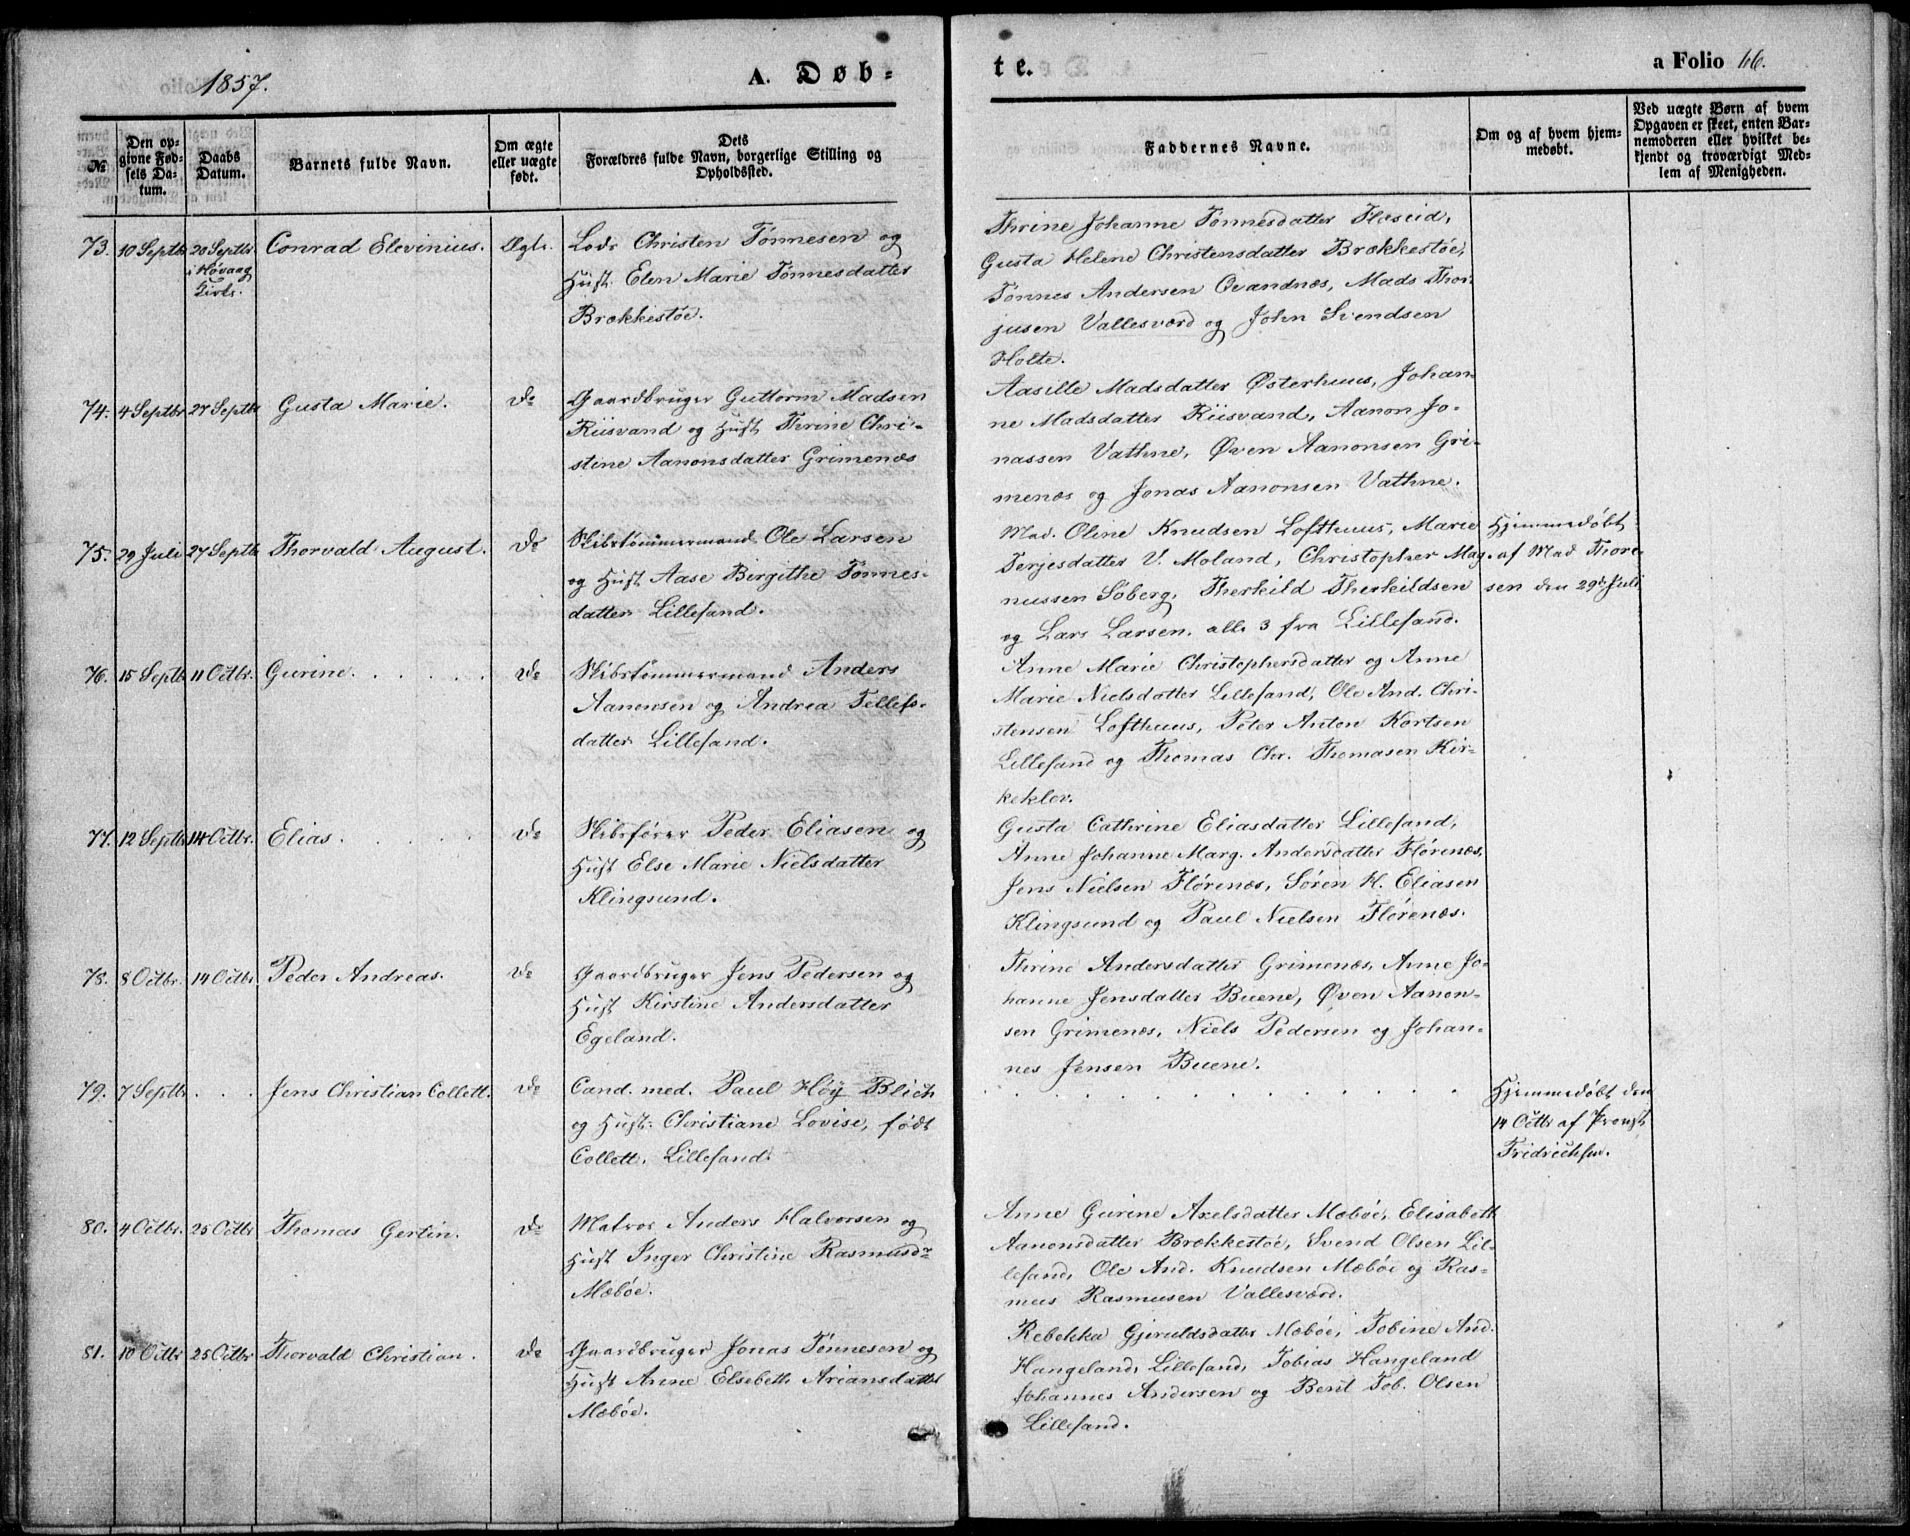 1857.
A. Døb-
№
Den op-
givne Fød-
sels Da-
tum.
Daabs
Datum.
Barnets fulde Navn.
Om ægte
eller uægte
født.
Dets
Forældres fulde Navn, borgerlige Stilling og
Opholdssted.
73. 10 Septbr 20 Septbr. Conrad Elevinius. Ægte. Lods Christen Tønnesen og
i Høvaag Hust. Elen Marie Tønnesdatter
Kirke. Brækkestøe.
74. 4 Septbr 27 Septbr Gusta Marie. do Gaardbruger Guttorm Madsen
Riisvand og Hust Thrine Chri-
stine Aanonsdatter Grimenæs
75. 29 Juli 27 Septbr Thorvald August. do Skibstømmermand Ole Larsen
og Hust Aase Birgithe Tønnes-
datter Lillesand.
76. 15 Septbr 11 Octbr. Gurine. do Skibstømmermand Anders
Aanonsen og Andrea Tellefs-
datter Lillesand.
77. 12 Septbr 14 Octbr. Elias. do Skibsfører Peder Eliasen og
Hust Else Marie Nielsdatter
Klingsund.
78. 8 Octbr. 14 Octbr. Peder Andreas. do Gaardbruger Jens Pedersen og
Hust Kirstine Andersdatter
Egeland.
79. 7 Septbr . . . Jens Christian Collett. do Cand. med. Paul Høy Blich
og Hust. Christiane Lovise, født
Collett, Lillesand.
80. 4 Octbr. 25 Octbr Thomas Gertin. do Matros Anders Halvorsen og
Hust Inger Christine Rasmusdr
Mæbøe.
81. 10 Octbr 25 Octbr Thorvald Christian. do Gaardbruger Jonas Tønnesen og
Hust Anne Elsebeth Ariansdatter
Mæbøe.
te.
a Folio 66.
Faddernes Navne.
Om og af hvem hjem-
medøbt.
Ved uægte Børn af hvem
Opgaven er skeet, enten Bar-
nemoderen eller hvilket be-
kjendt og troværdigt Med-
lem af Menigheden.
Thrine Johanne Tønnesdatter Flæseid,
Gusta Helene Christensdatter Brækkestøe,
Tønnes Andersen Qvandnæs, Mads Thor-
jusen Vallesværd og John Svendsen
Holte.
Aasille Madsdatter Østerhuus, Johan-
ne Madsdatter Riisvand, Aanon Jo-
nassen Vathne, Øven Aanonsen Gri-
menæs og Jonas Aanonsen Vathne.
Mad. Oline Knudsen Lofthuus, Marie Hjemmedøbt
Terjesdatter V. Moland, Christopher Mag- af Mad Thore-
nussen Søberg, Therkild Therkildsen sen den 29de Juli
og Lars Larsen, alle 3 fra Lillesand.
Anne Marie Christophersdatter og Anne
Marie Nielsdatter Lillesand, Ole And. Chri-
stensen Lofthuus, Peter Anton Kortsen
Lillesand og Thomas Chr. Thomasen Kir-
kekler.
Gusta Cathrine Eliasdatter Lillesand,
Anne Johanne Marg. Andersdatter Flørenæs,
Jens Nielsen Flørenæs, Søren H. Eliasen
Klingsund og Paul Nielsen Flørenæs.
Thrine Andersdatter Grimenæs, Anne Jo-
hanne Jensdatter Buene, Øven Aanon-
sen Grimenæs, Niels Pedersen og Johan-
nes Jensen Buene.
Hjemmedøbt den
14 Octbr af Provst
Fridrichsen.
Anne Gurine Axelsdatter Mæbøe, Elisabeth
Aanonsdatter Brækkestøe, Svend Olsen Lil-
lesand, Ole And. Knudsen Mæbøe og Ras-
mus Rasmusen Vallesværd.
Rebekka Gjeruldsdatter Mæbøe, Tobine And.
Hangeland, Lillesand, Tobias Hangeland
Johannes Andersen og Berit Tob. Olsen
Lillesand.